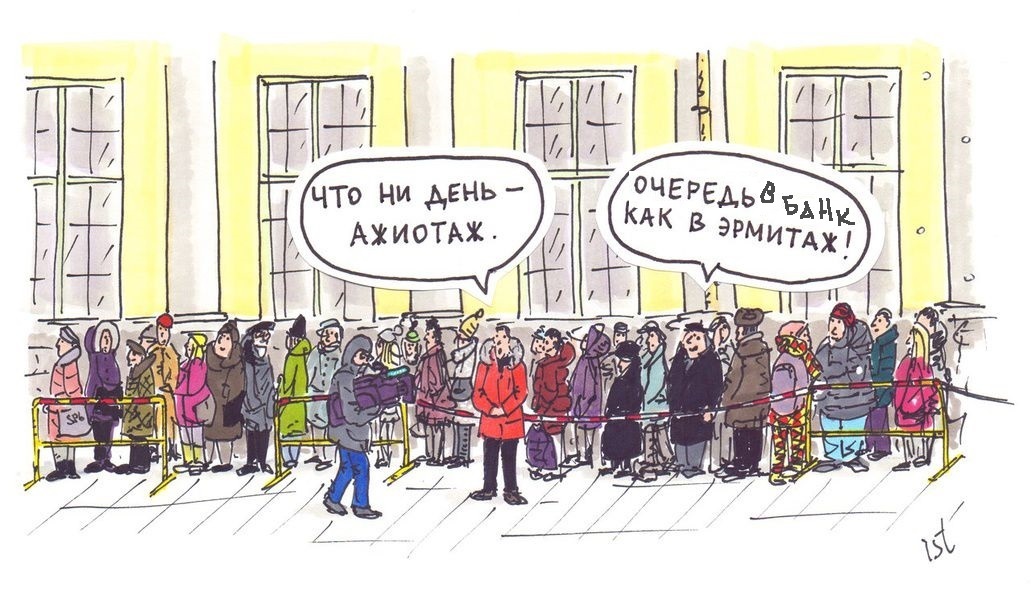 ЧТО НИ ДЕНЬ –
АЖИОТАЖ.
ОЧЕРЕДЬ В БАНК
КАК В ЭРМИТАЖ!
SPb
ist